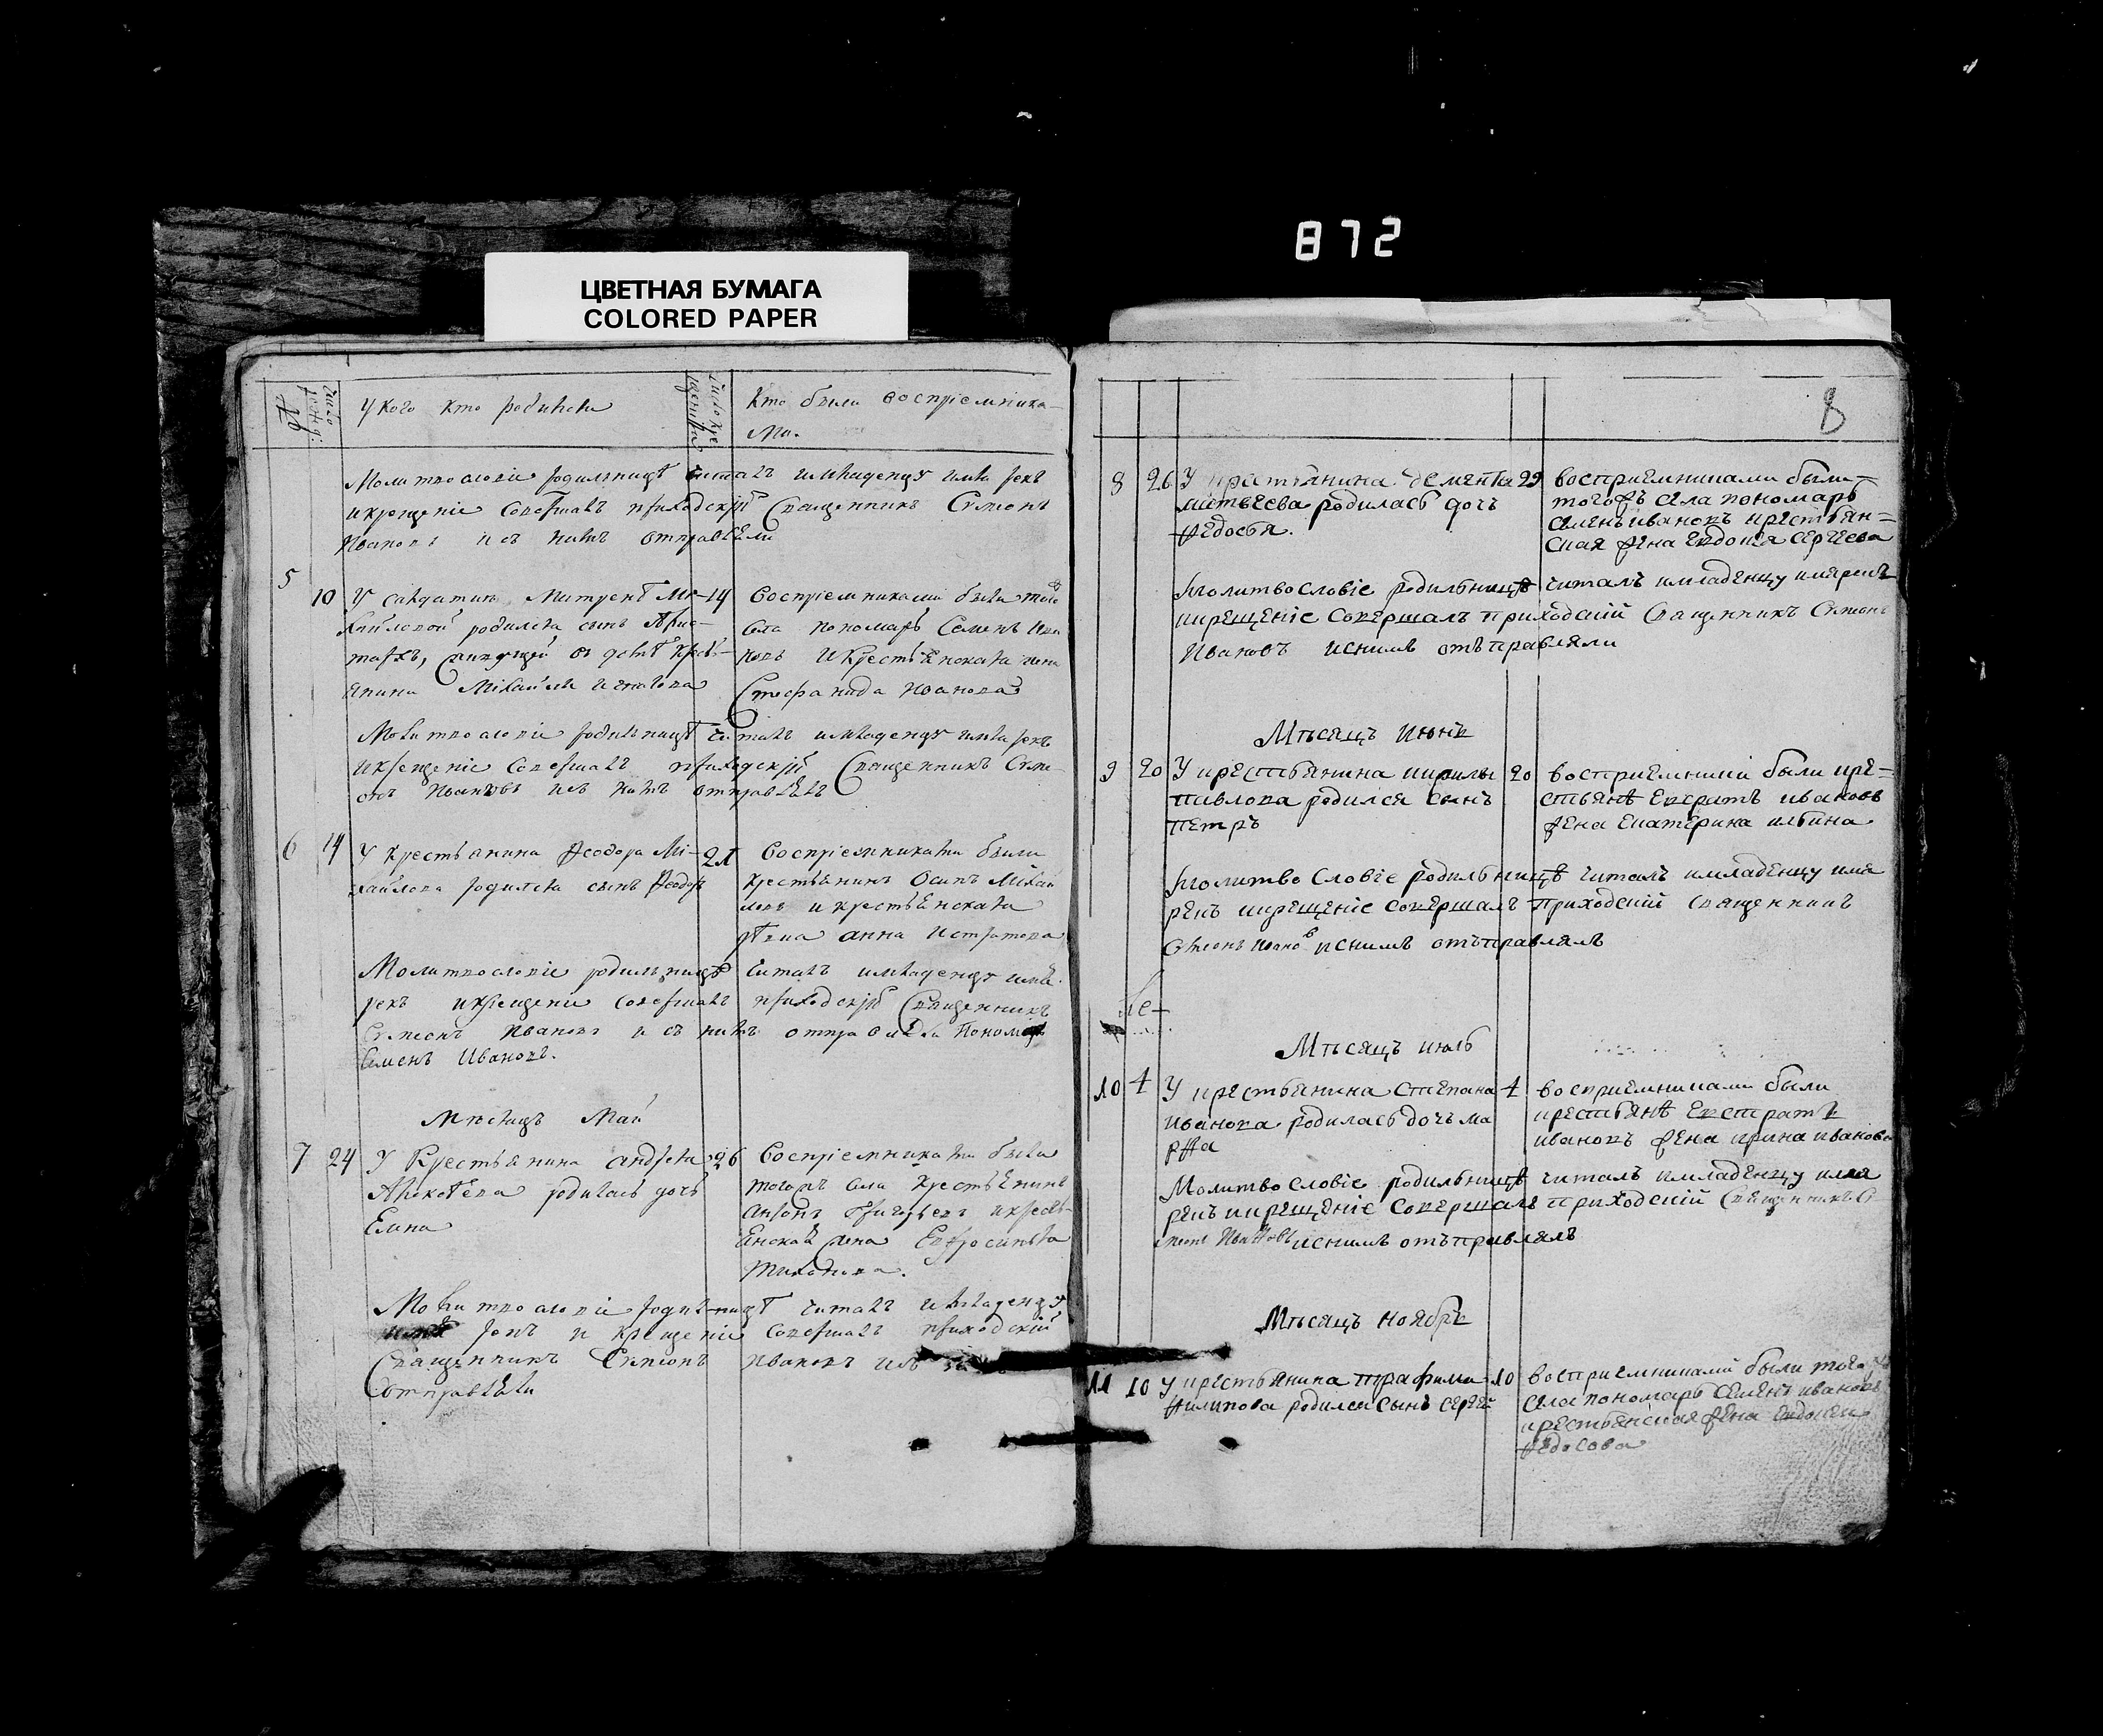 872
ЦВЕТНАЯ БУМАГА
COLORED PAPER
№
число рожд:
У кого кто родился
число кре
щения
Кто были воспріемника
ми.
Молитвословіе родильницѣ читалъ и младенцу имя рекъ
и крещеніе совершалъ приходскій священникъ Сѵмеонъ
Ивановъ и съ нимъ отправляли
5
10 У салдатки Михайловой родился сынъ
14 Воспріемниками были того
села пономарь Семенъ Ива
новъ и крестьянская жена
Стефанида Иванова
Молитвословіе родильницѣ читалъ и младенцу имя рекъ
и крещеніе совершалъ приходскій священникъ Сѵме
онъ Ивановъ и съ нимъ отправлялъ
6 14 У крестьянина Ѳеодора Мі-
хайлова родился сынъ Ѳеодоръ
21 Воспріемниками были
крестьянинъ Осипъ Михай
ловъ и крестьянская
жена Анна Истратова
Молитвословіе родильницѣ читалъ и младенцу имя
рекъ и крещеніе совершалъ приходскій священникъ
Сѵмеонъ Ивановъ и съ нимъ отправляли пономарь
Семенъ Ивановъ.
Мѣсяцъ Май
7 24 У крестьянина Андрея
Алексѣева родилась дочь
Елина
26 Воспріемниками были
тогожъ села крестьянинъ
Григорьевъ и кресть-
янская жена Евфросинья
Молитвословіе родильницѣ читалъ и младенцу
имя рекъ и крещеніе совершалъ приходскій
священникъ Сѵмеонъ Ивановъ
отправляли
8
8 26 У крестьянина Дементья
Матвеева родилась дочь
Ѳедосья.
29 восприемниками были
тогожъ села пономарь
Семенъ Ивановъ крестьян=
ская жена Евдокия Сергеева
Молитвословіе родильницѣ читалъ и младенцу имярекъ
и крещеніе совершалъ приходскій священникъ Сѵмеонъ
Ивановъ и снимъ отъправляли
Мѣсяцъ Июнь
9 20 У крестьянина Кирилы
Павлова родился сынъ
Петръ
20 восприемники были кре=
стьянѣ Евстратъ Ивановъ
жена Екатерина Ильина
Молитвословіе родильницѣ читалъ и младенцу имя
рекъ и крещеніе совершалъ приходскій священникъ
Сѵмеонъ Ивановъ и снимъ отъправлялъ
Мѣсяцъ июль
10 4 У крестьянина Степана
Иванова родилась дочь Ма
рѳа
4 восприемниками были
крестьянѣ Евстратъ
Ивановъ жена Ирина Иванова
Молитвословіе родильницѣ читалъ и младенцу имя
рекъ и крещеніе совершалъ приходскій священникъ Сѵ
меонъ Ивановъ и снимъ отъправлялъ
Мѣсяцъ Ноябрь
11 10 У крестьянина Трафима
Филипова родился сынъ Сергей
10 восприемниками были того жъ
села пономарь Семенъ Ивановъ
крестьянская жена Евдокея
Ѳедосова